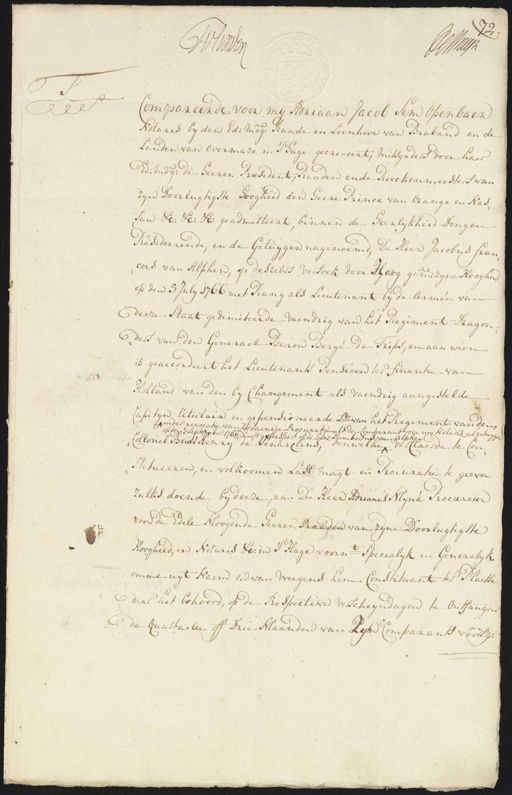 72.
F
Compareerde voor my Adriaan Jacob Sem Openbaer
Notaris by den Ed: Mog: Raade en Leenhove van Braband en de
Landen van Overmaze in 'S Hage geadmitteert, mitsgaders door haer
Ed: Mog: de Heeren President, Raaden ende Reeckenmeesters van
zyn Doorlugtigste Hoogheid den Heere Prince van Orange en Nas,
sau &c. &c. &c. geadmitteert, binnen de Heerlykheid Dongen
Resideerende, en de Getuygen nagenoemd, De Heer Jacobus fran,
cois van Alphen, op deszelfs Versoek door Hooggem: zyne Hoogheid
op den 5 July 1766 met Rang als Lieutenant by de Armée van
deeze Staat gedimitteerde Vaendrig van het Regiment Dragon,
ders van den Generael Baron Bergh de Trips, en aan wien
is geaccordeert het Lieutenants Pensioen ter Finantie van
Holland van den by Changement als vaendrig aangestelde
Capityn titulair en gepensioneerde Lt. van het Regiment van den
Colonel de Salve, Denwelke Verclaerde te Con,
stitueeren, en volkoomen Last magt en Procuratie te geeven
zulks doende by deeze, aan De Heer Adrianus Kluyné Procureur
voor de Edele Moogende Heeren Raaden van zyne Doorlugtigste
Hoogheid, en Notaris &c: in 'S Hage voornt. Speciaelyk en Generalyk
omme uyt Naem en van Weegens hem Constituant ter Plaetse
daer het behoord, op de Respective Verscheyndagen te Ontfangen
de Quartaelen off Drie Maanden van Zyn Comparants voorsz: